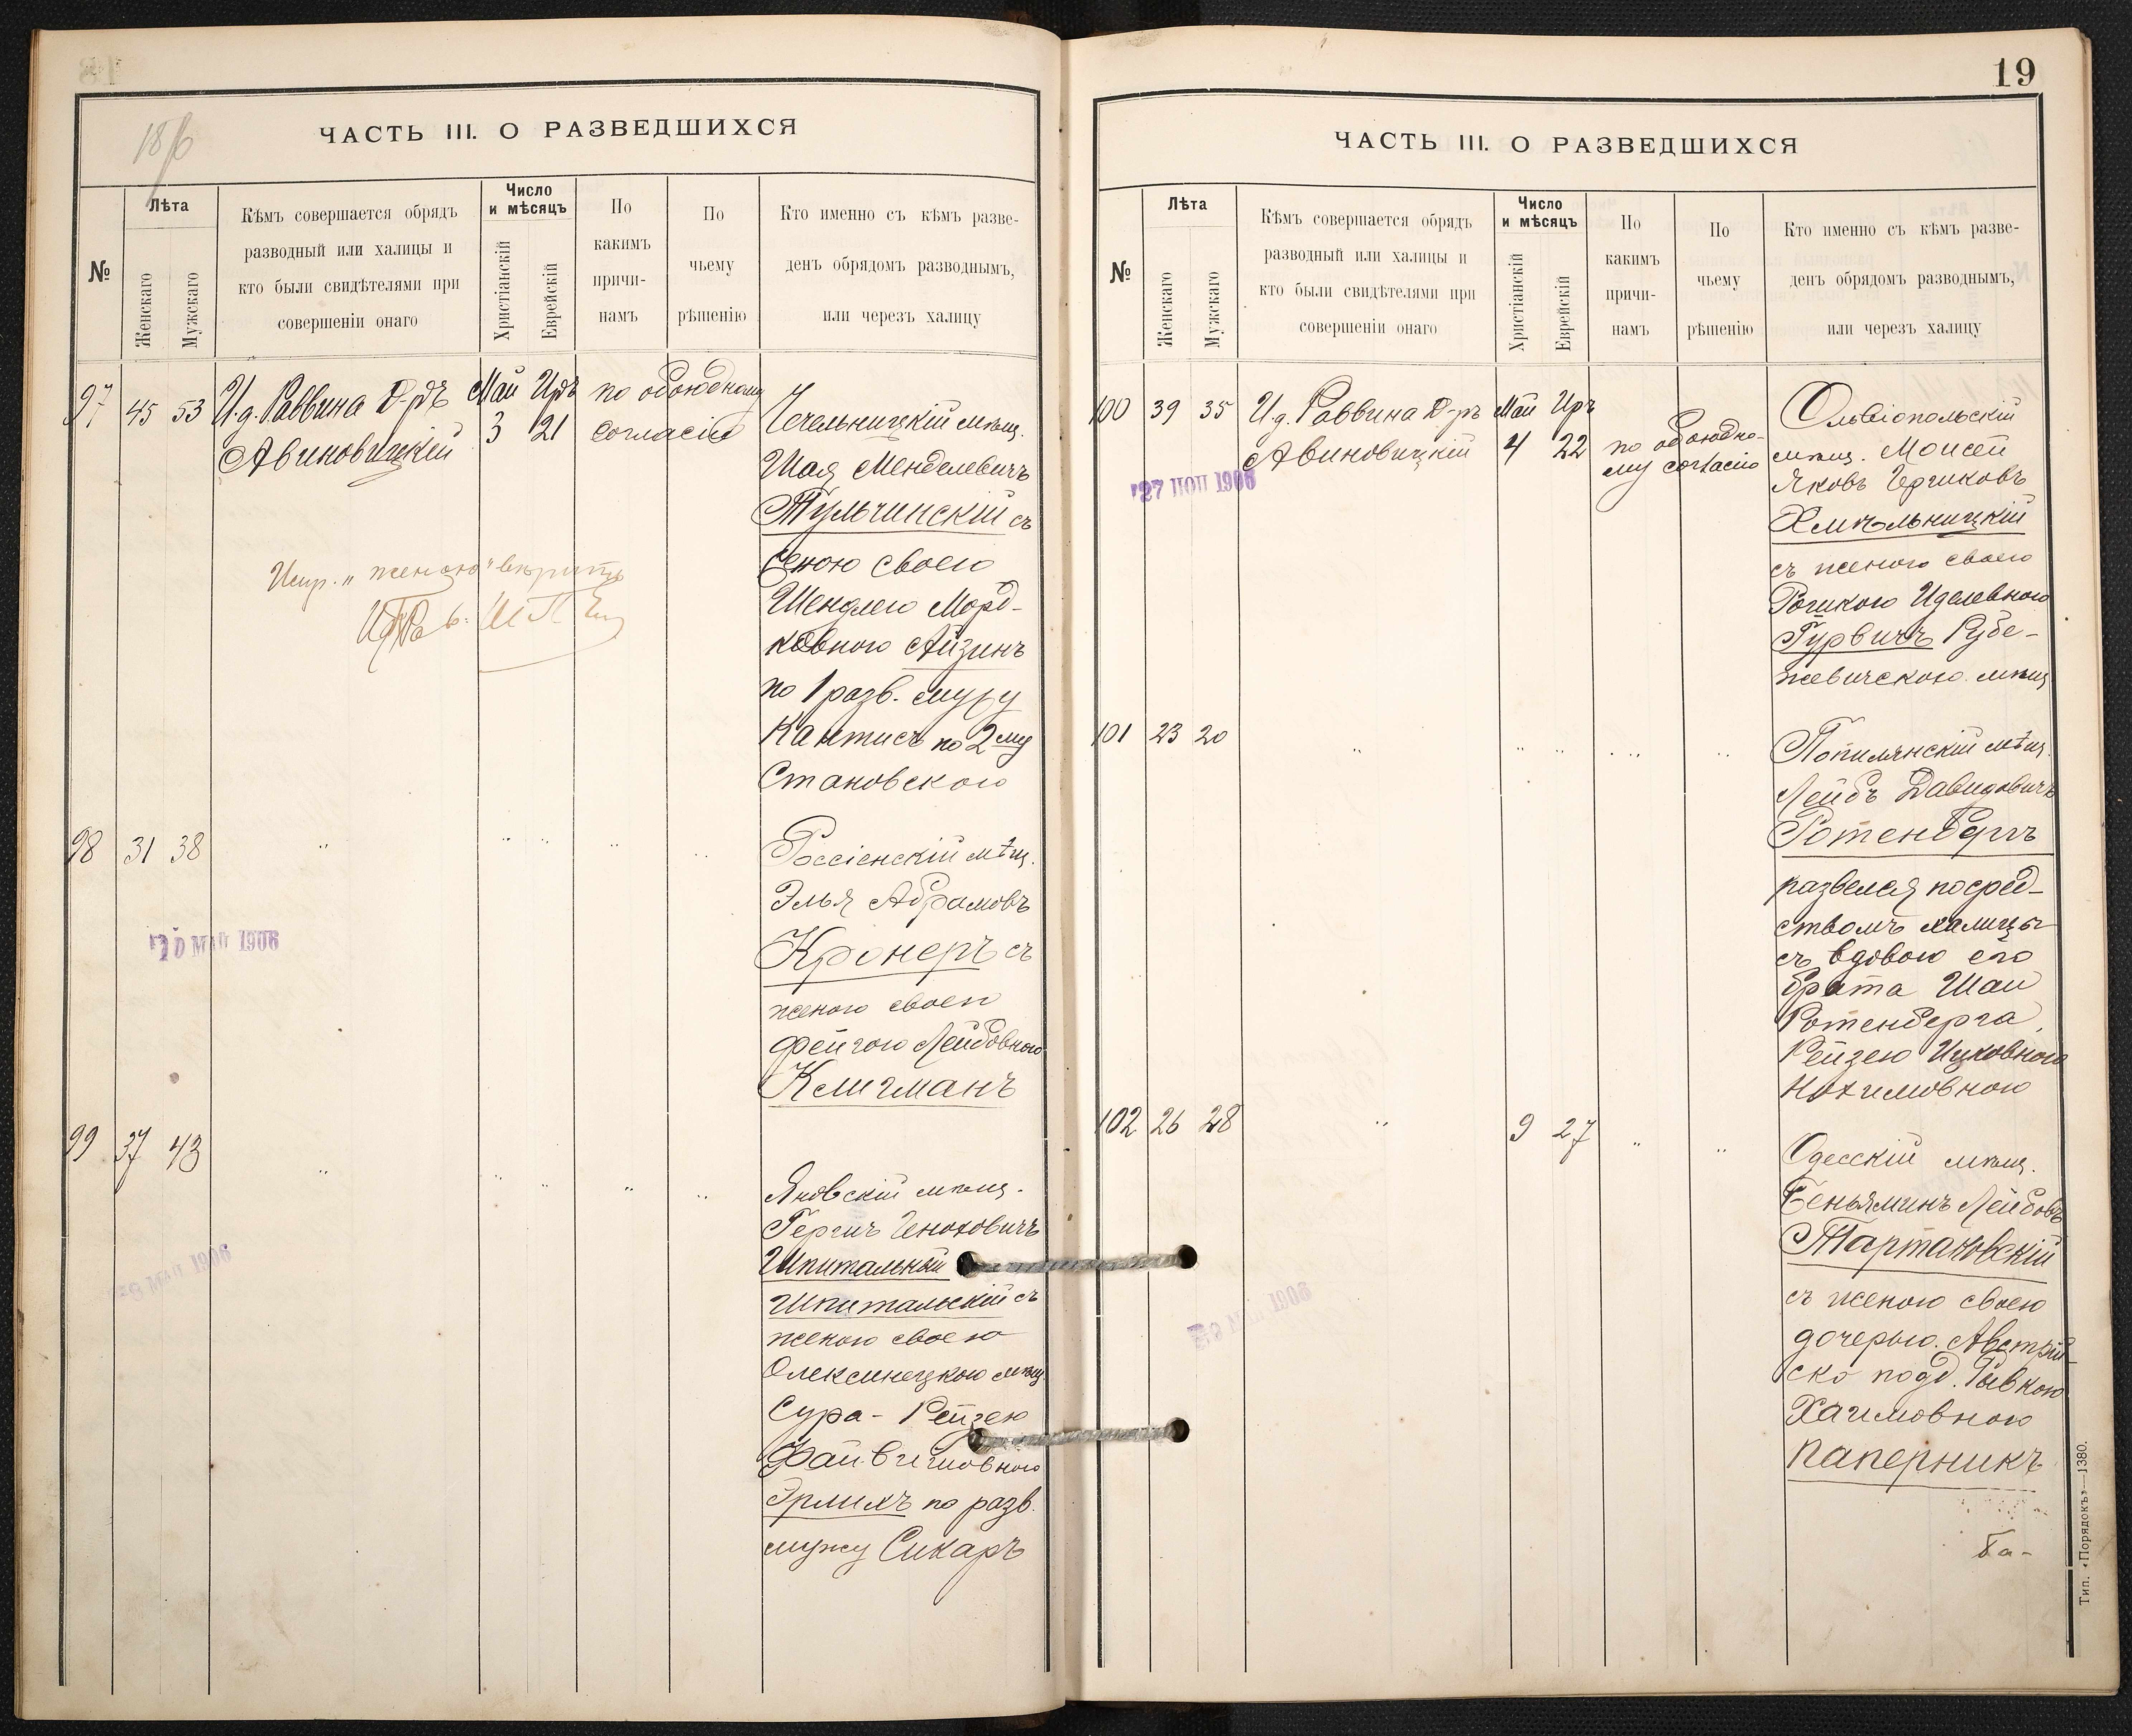 18
ЧАСТЬ III. О РАЗВЕДШИХСЯ
№
Лѣта
Женскаго
Мужскаго
Кѣмъ совершается обрядъ
разводный или халицы и
кто были свидѣтелями при
совершеніи онаго
Число
и мѣсяцъ
Христіанскій
Еврейскій
По
какимъ
причи-
намъ
По
чьему
рѣшенію
Кто именно съ кѣмъ разве-
денъ обрядомъ разводнымъ,
или черезъ халицу
97 45 53 И.д. Раввина Д-ръ Май Иръ по обоюдному
Авиновицкій 3 21 согласію
Чечельницкій мѣщ.
Шая Менделевичъ
Тульчинскій съ
женою своею
Шендлею Морд-
ковною Айзинъ
по 1 разв. мужу
по 2му
Становскою
Испр. „женою" вѣрить
98 31 38 " " " " "
Россіенскій мѣщ.
Элья Абрамовъ
Кронеръ съ
женою своею
Фейгою Лейбовною
Клигманъ
МАЙ 1906
99 37 43 " " " " "
Яновскій мѣщ.
Гершъ Геноховичъ
Шпитальный
Шпитальскій съ
женою своею
Олексинецкою мѣщ.
Сура-Рейзею
Файвишовною
Эрлихъ по разв.
мужу Сикаръ
МАЙ 1906
19
ЧАСТЬ III. О РАЗВЕДШИХСЯ
№
Лѣта
Женскаго
Мужскаго
Кѣмъ совершается обрядъ
разводный или халицы и
кто были свидѣтелями при
совершеніи онаго
Число
и мѣсяцъ
Христіанскій
Еврейскій
По
какимъ
причи-
намъ
По
чьему
рѣшенію
Кто именно съ кѣмъ разве-
денъ обрядомъ разводнымъ,
или черезъ халицу
100 39 35 И.д. Раввина Д-ръ Май Иръ
Авиновицкій 4 22 по обоюдно-
му согласію
27 1906
Ольвіопольскій
мѣщ. Моисей
Яковъ Герчиковъ
Хмѣльницкій
съ женою своею
Рошкою Иделевною
Гурвичъ Рубе-
жевичскою мѣщ.
101 23 20 " " " " "
Попилянскій мѣщ.
Лейбъ Давидовичъ
Ротенбергъ
развелся посред-
ствомъ халицы
съ вдовою его
брата Шаи
Ротенберга,
Рейзею Ицковною
Нохимовною
102 26 28 " 9 27 " "
Одесскій мѣщ.
Беньяминъ Лейбовъ
Тартаковскій
съ женою своею
дочерью Австрій-
ско подд. Рывкою
Хаимовною
Паперникъ
1906
Ба-
Тип. «Порядокъ»—1380.